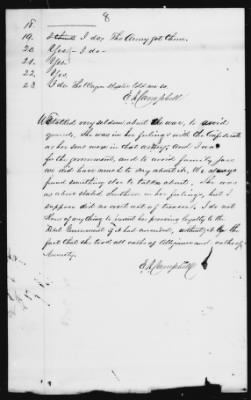 8
18.
19. I do, The Army got them.
20 Yes, I do
21. Yes.
22. Yes.
23 I do The Wagon Master told me so.
E. A. Campbell
We talked very seldom about the war, to avoid
quarrels, she was in her feelings with the Confederate
as her sons were in that army, And I was
for the government, and to avoid family jars
we did have much to say about it. We always
found something else to talk about. She was
as above stated Southern in her feelings, but I
suppose did no overt act of treason. I do not
know of anything to prevent her proving loyalty to the
Fedl Government if it had succeeded, without it be the
fact that she took all oaths of Allegiance and oaths of
Amnesty.
E. A. Campbell